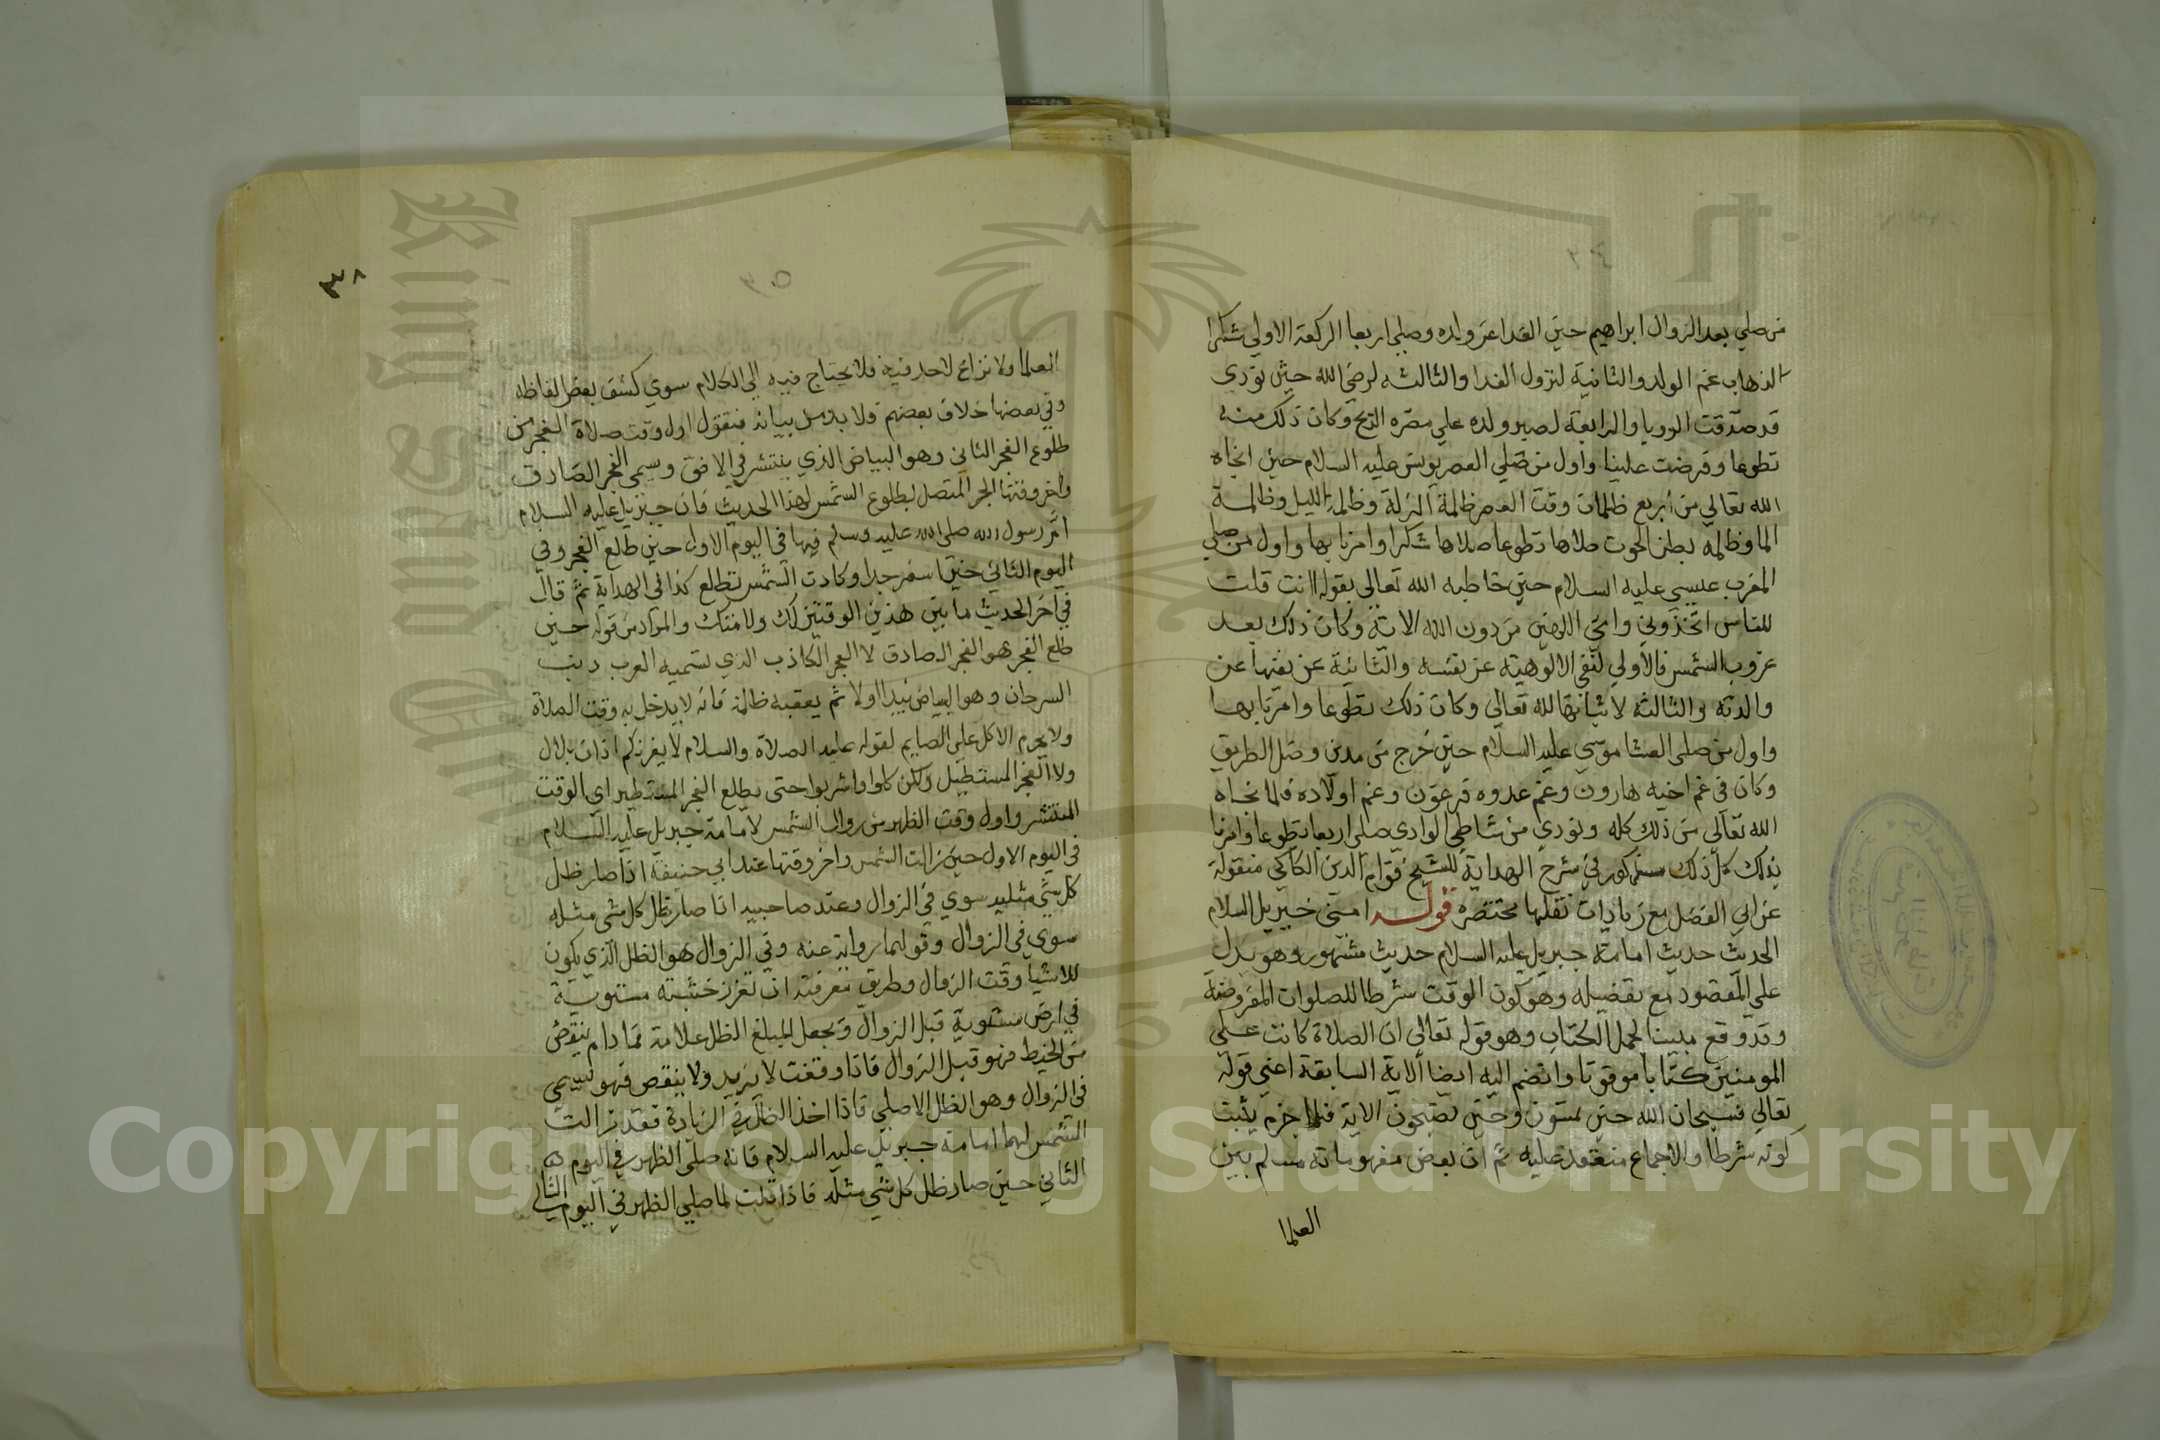 من صلي بعد الزوال ابراهيم حين الفدا عن ولده وصلي اربعا الركعة الاولي شكرا
لذهاب غم الولد والثانية لنزول الفدا والثالثه لرضي الله حين نودي
قد صدقت الرويا والرابعة لصبر ولده علي مضره الذبح وكان ذلك منه
تطوعا وفرضت علينا واول من صلي العصر يونس عليه السلام حين انجاه
الله تعالي من اربع ظلمات وقت العصر ظلمة الزلة وظلمة الليل وظلمة
الما وظلمه بطن الحوت صلاها تطوعا صلاها شكرا وامرنا بها واول من صلي
المغرب عيسي عليه السلام حين خاطبه الله تعالى بقوله اانت قلت
للناس اتخذوني وامي الهين من دون الله الاية وكان ذلك بعد
غروب الشمس فالأولي لنفي الالوهية عن نفسه والثانية عن نفيها عن
والدته والثالثه لاثباتها لله تعالي وكان ذلك تطوعا وامرنا بها
واول من صلى العشا موسي عليه السلام حين خرج من مدين وضل الطريق
وكان في غم اخيه هارون وغم عدوه فرعون وغم اولاده فلما نجاه
الله تعالي من ذلك كله ونودي من شاطي الوادي صلي اربعا تطوعا وامرنا
بذلك كل ذلك مذكور في شرح الهداية للشيخ قوام الدين الكاكي منقولة
عن ابي الفضل مع زيادات نقلها مختصره قوله امني جبريل السلام
الحديث حديث امامة جبريل عليه السلام حديث مشهور وهو يدل
علي المقصود مع تفضيله وهو كون الوقت شرطا للصلوات المفروضة
وقد وقع مبينا لمجمل الكتاب وهو قوله تعالى ان الصلاة كانت علي
المومنين كتابا موقوتا وانضم اليه ايضا ألاية السابقة اعني قوله
تعالي فسبحان الله حين تمسون وحين تصبحون الاية فلما جزم يثبت
كونه شرطا والاجماع منعقد عليه ثم ان بعض مفهوماته مسلم بين
العلما
٣٨
العلما ولا نزاع لاحد فيه فلا يحتاج فيه الي الكلام سوي كشف بعض الفاظه
وفي بعضها خلاف بعضهم ولا بد من بيانه فنقول اول وقت صلاة الفجر من
طلوع الفجر الثاني وهو البياض الذي ينتشر في الافق وسمي الفجر الصادق
واخر وقتها الجز المتصل بطلوع الشمس لهذا الحديث فان جبريل عليه السلام
ام رسول الله صلى الله عليه وسلم فيها في اليوم الاول حين طلع الفجر وفي
اليوم الثاني حين اسفر جدا وكادت الشمس تطلع كذا في الهداية ثم قال
في اخر الحديث ما بين هذين الوقتين لك ولامتك والمراد من قوله حين
طلع الفجر هو الفجر الصادق لا الفجر الكاذب الذي تسميه العرب ذنب
السرحان وهو البياض يبدا اولا ثم يعقبه ظلمة فانه لا يدخل به وقت الصلاة
ولا يحرم الاكل علي الصايم لقوله عليه الصلاة والسلام لا يغرنكم اذان بلال
ولا الفجر المستطيل ولكن كلوا واشربوا حتى يطلع الفجر المستطير اي الوقت
المنتشر واول وقت الظهر من زوال الشمس لامامة جبريل عليه السلام
في اليوم الاول حين زالت الشمس واخر وقتها عند ابي حنيفة اذا صار ظل
كل شي مثليه سوي في الزوال وعند صاحبيه اذا صار ظل كل شي مثله
سوي في الزوال وقولهما رواية عنه وفي الزوال هو الظل الذي يكون
للاشيا وقت الزوال وطريق معرفته ان تغرز خشبة مستوية
في ارض مستوية قبل الزوال وتجعل لمبلغ الظل علامة فما دام ينقص
من الخيط فهو قبل الزوال فاذا وقفت لا يزيد ولا ينقص فهو يسمي
في الزوال وهو الظل الاصلي فاذا اخذ الظل في الزيادة فقد زالت
الشمس لهما امامة جبريل عليه السلام فانه صلى الظهر في اليوم
الثاني حين صار ظل كل شي مثله فاذا قلت لما صلي الظهر في اليوم الثاني
King Saud University
Copyright © King Saud University